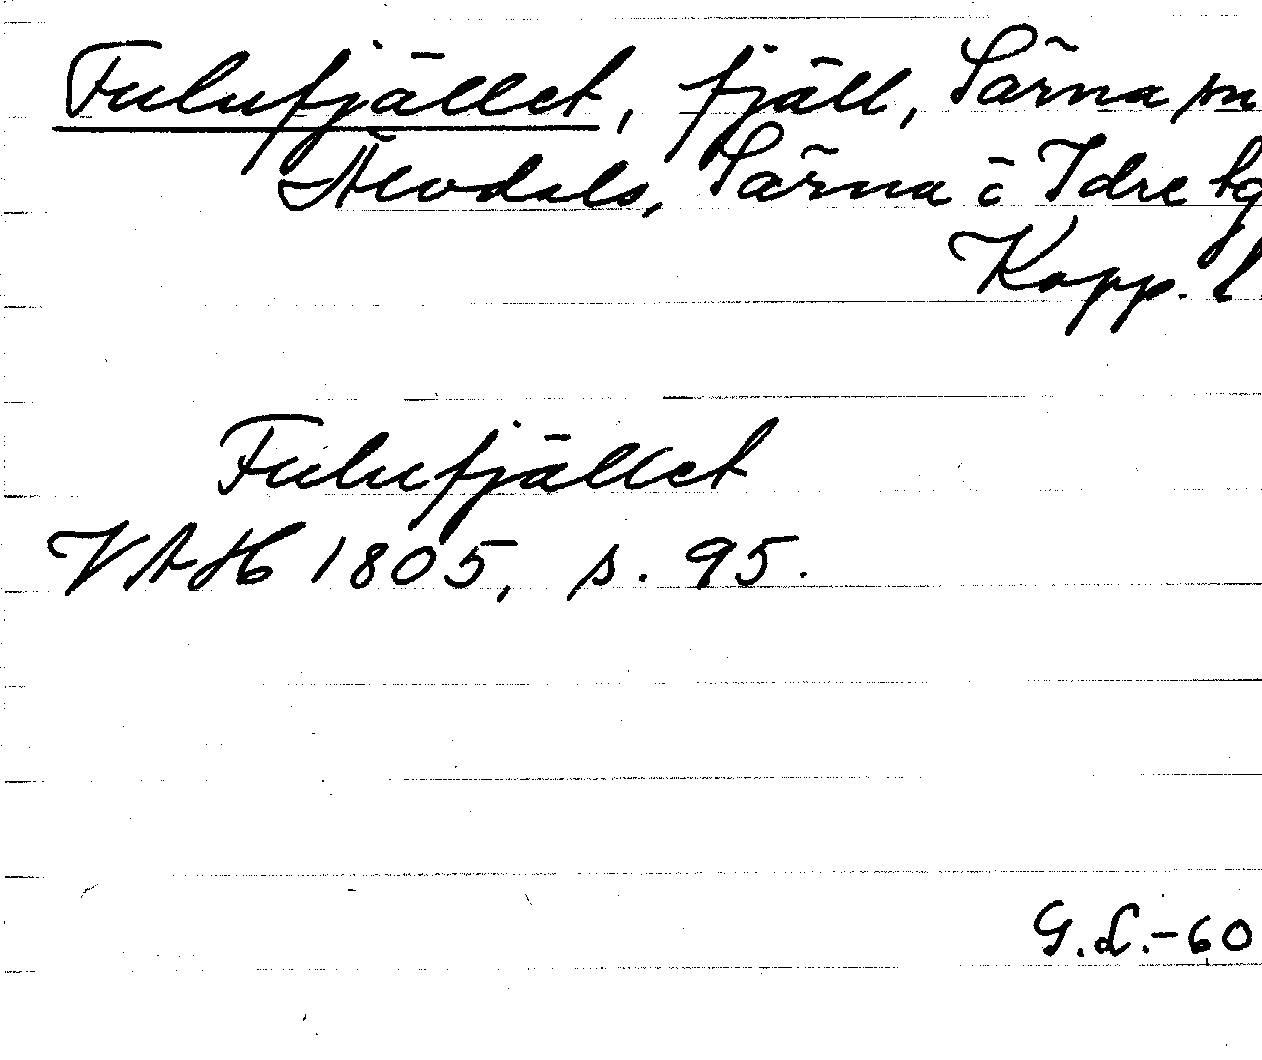 Fulufjället, fjäll, Särna sn
Älvdals, Särna o Idre tg
Kopp. l
Fulufjället
VAH 1805, s. 95.
G.L.-60